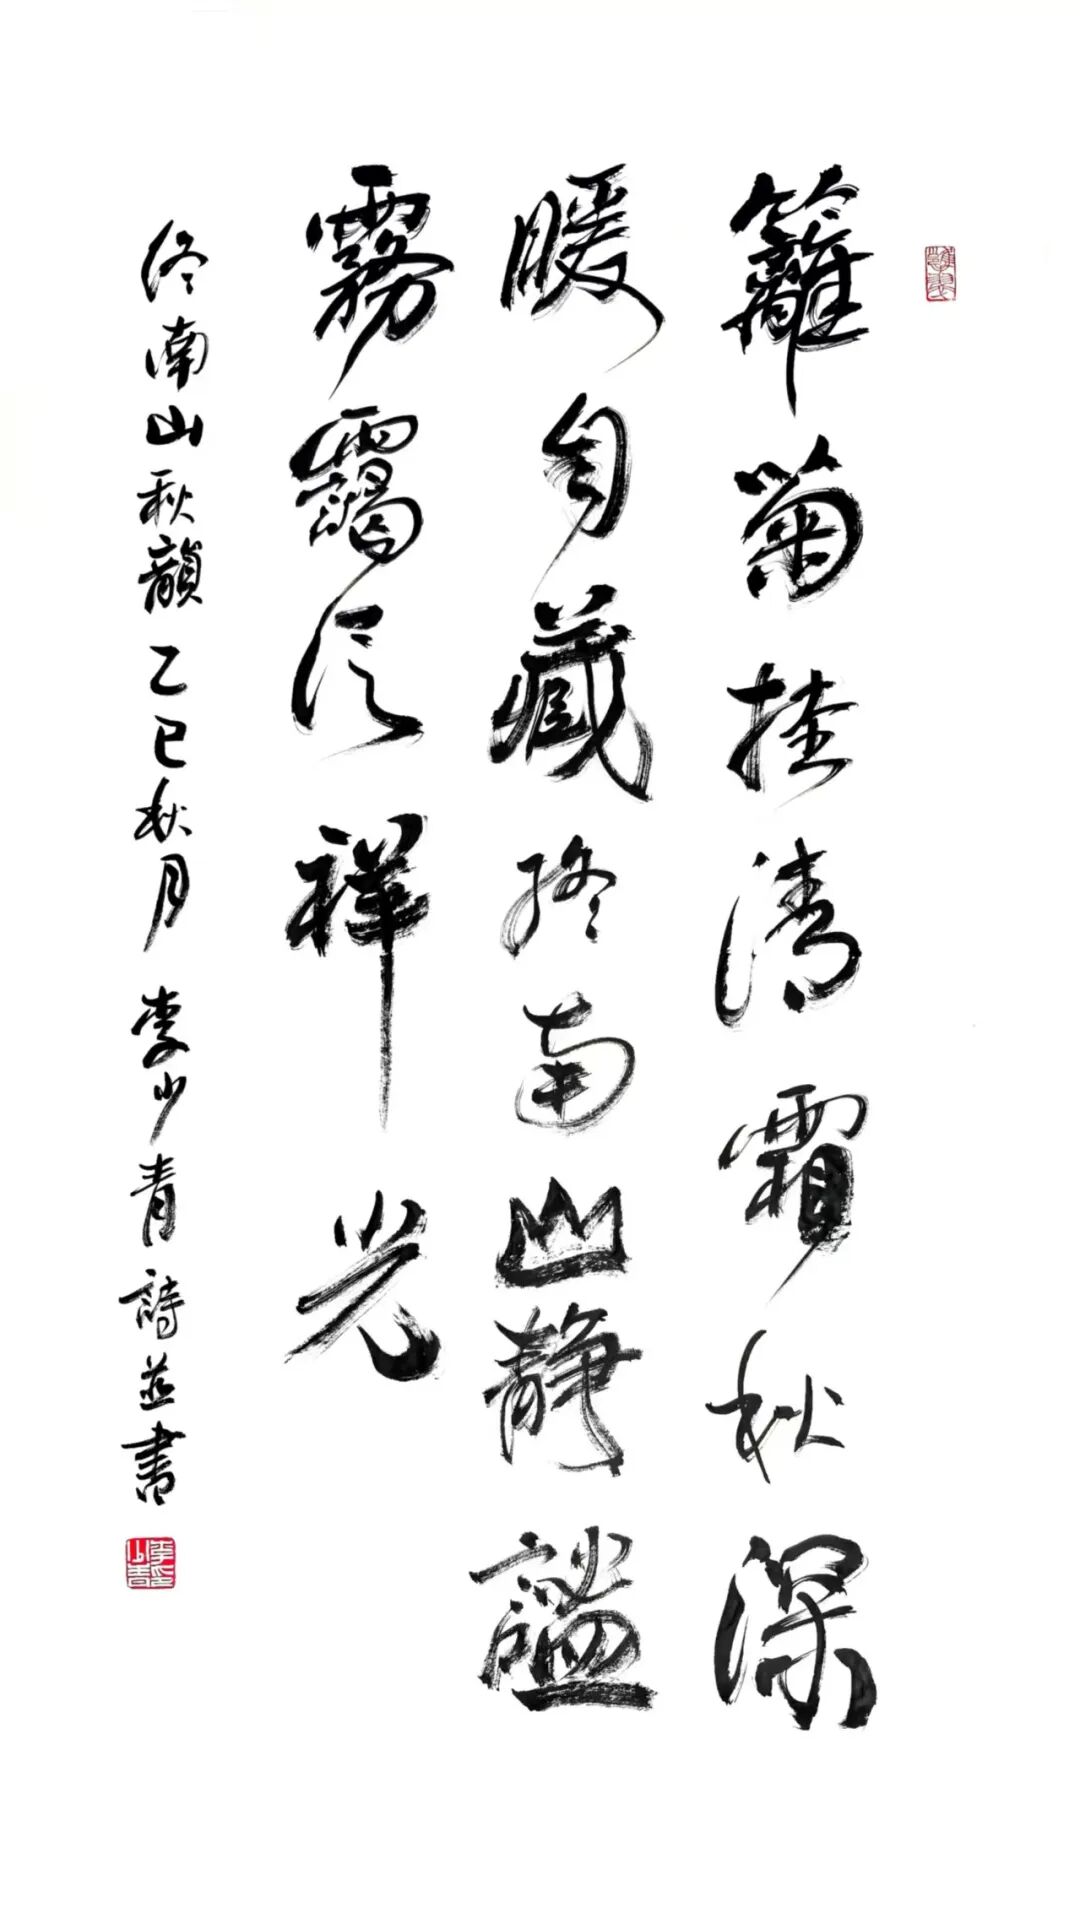 籬菊挂清霜秋深
暖自藏終南山靜謐
霧靄泛祥光
終南山秋韻乙巳秋月李少青詩並書
李少青印